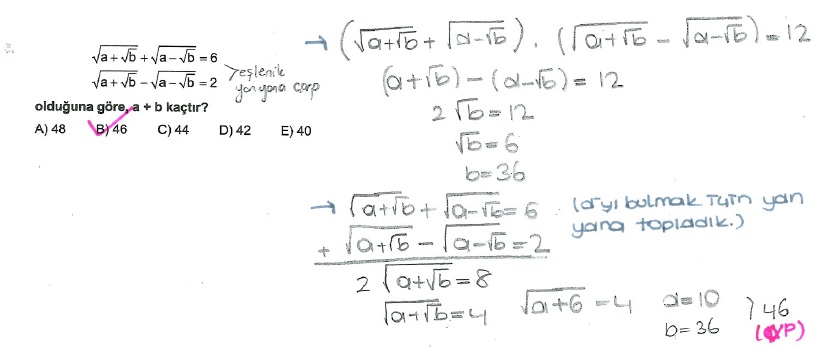 √a+√b + √a-√b = 6
√a+√b - √a-√b = 2
eşlenik
yan yana çarp
olduğuna göre, a + b kaçtır?
A) 48 B) 46 C) 44 D) 42 E) 40
→ (√a+√b + √a-√b) . (√a+√b - √a-√b) = 12
(a+√b) - (a-√b) = 12
2√b = 12
√b = 6
b = 36
→ √a+√b + √a-√b = 6
+ √a+√b - √a-√b = 2
(a'yı bulmak için yan
yana topladık.)
2√a+√b = 8
√a+√b = 4 √a+6 = 4 a=10
b=36
46